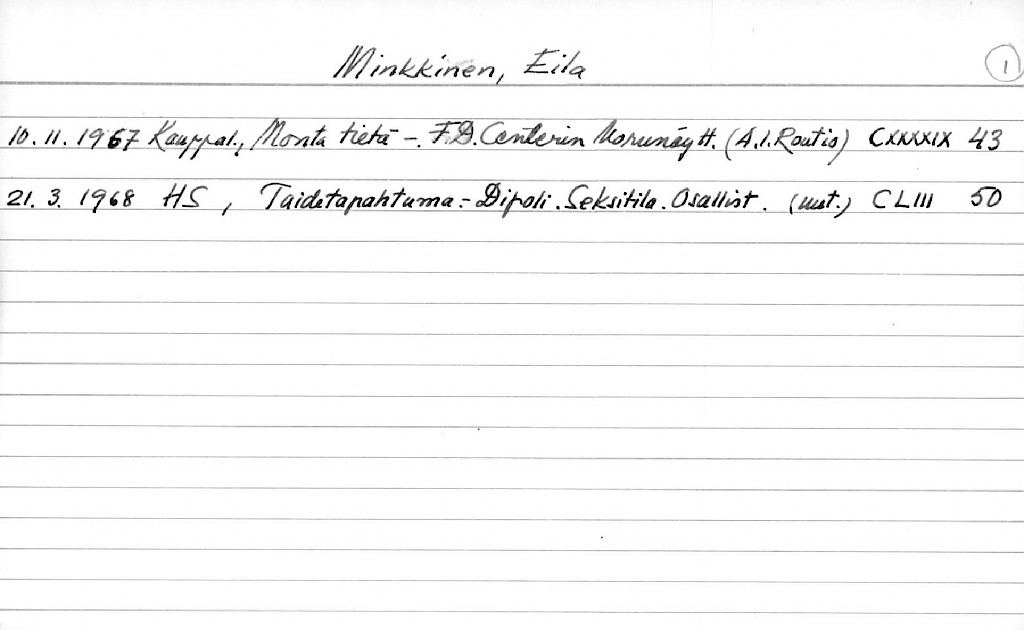 Minkkinen, Eila
1
10.11.1967 Kauppal., Monta tietä -. F.D. Centerin Korunäytt. (A.I.Routio) CXXXXIX 43
21. 3. 1968 HS, Taidetapahtuma - Dipoli. Seksitila. Osallist. (mst.) CLIII 50